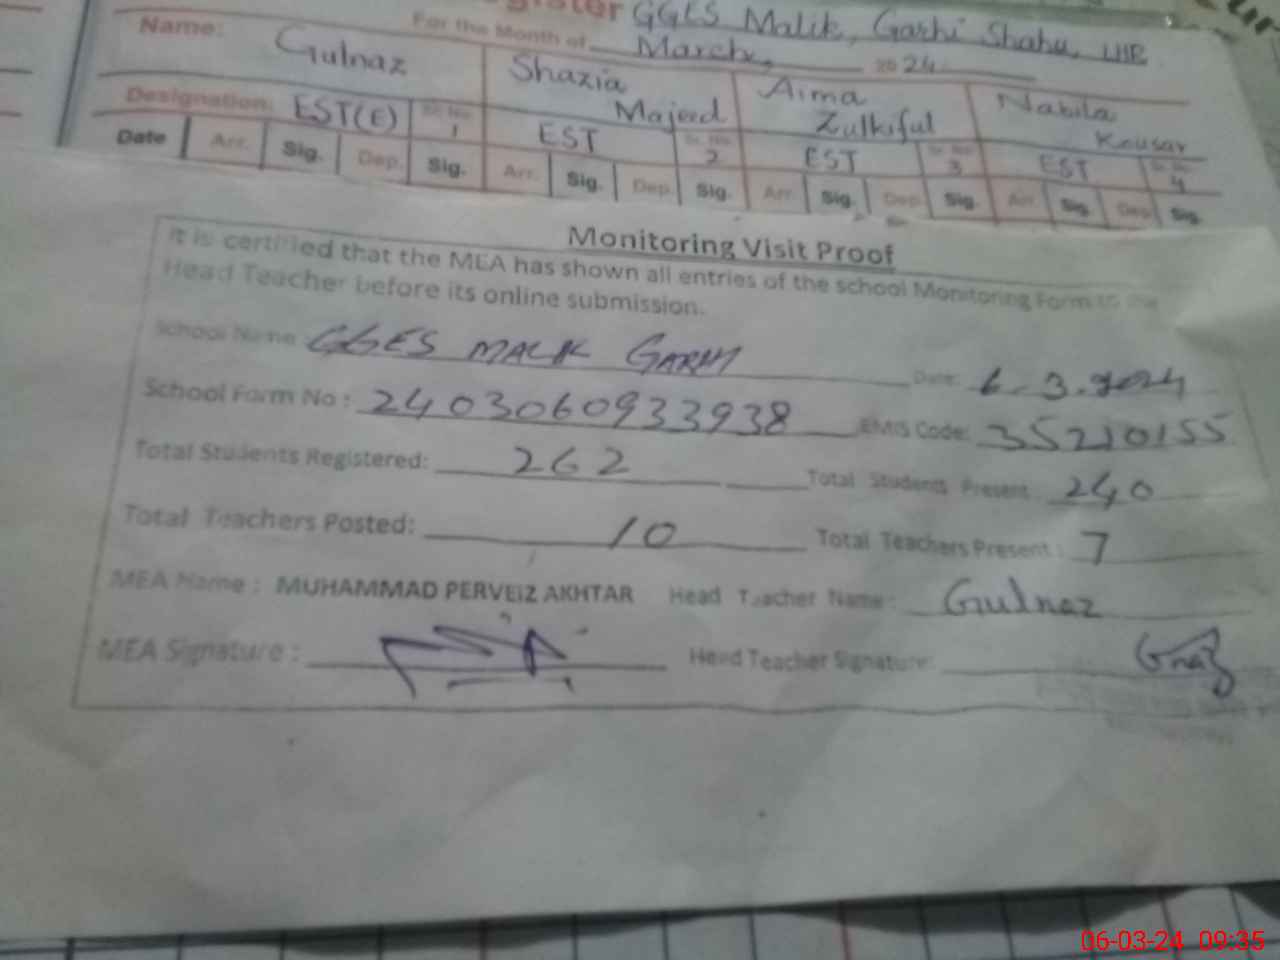 gister GGES Malik, Garhi Shahu, LHR
For the Month of March, 2024
Name: Gulnaz Shazia Majeed Aima Zulkiful Nabila Kousar
Designation: EST(E) Sr. No. 1 EST Sr. No. 2 EST Sr. No. 3 EST Sr. No. 4
Date Arr. Sig. Dep. Sig. Arr. Sig. Dep. Sig. Arr. Sig. Dep. Sig. Arr. Sig. Dep. Sig.
Monitoring Visit Proof
It is certified that the MEA has shown all entries of the school Monitoring Form to the
Head Teacher before its online submission.
School Name GGES MALIK GARHI Date: 6.3.2024
School Form No : 2403060933938 EMIS Code: 35210155
Total Students Registered: 262 Total Students Present 240
Total Teachers Posted: 10 Total Teachers Present : 7
MEA Name : MUHAMMAD PERVEIZ AKHTAR Head Teacher Name : Gulnaz
MEA Signature : Head Teacher Signature:
06-03-24 09:35